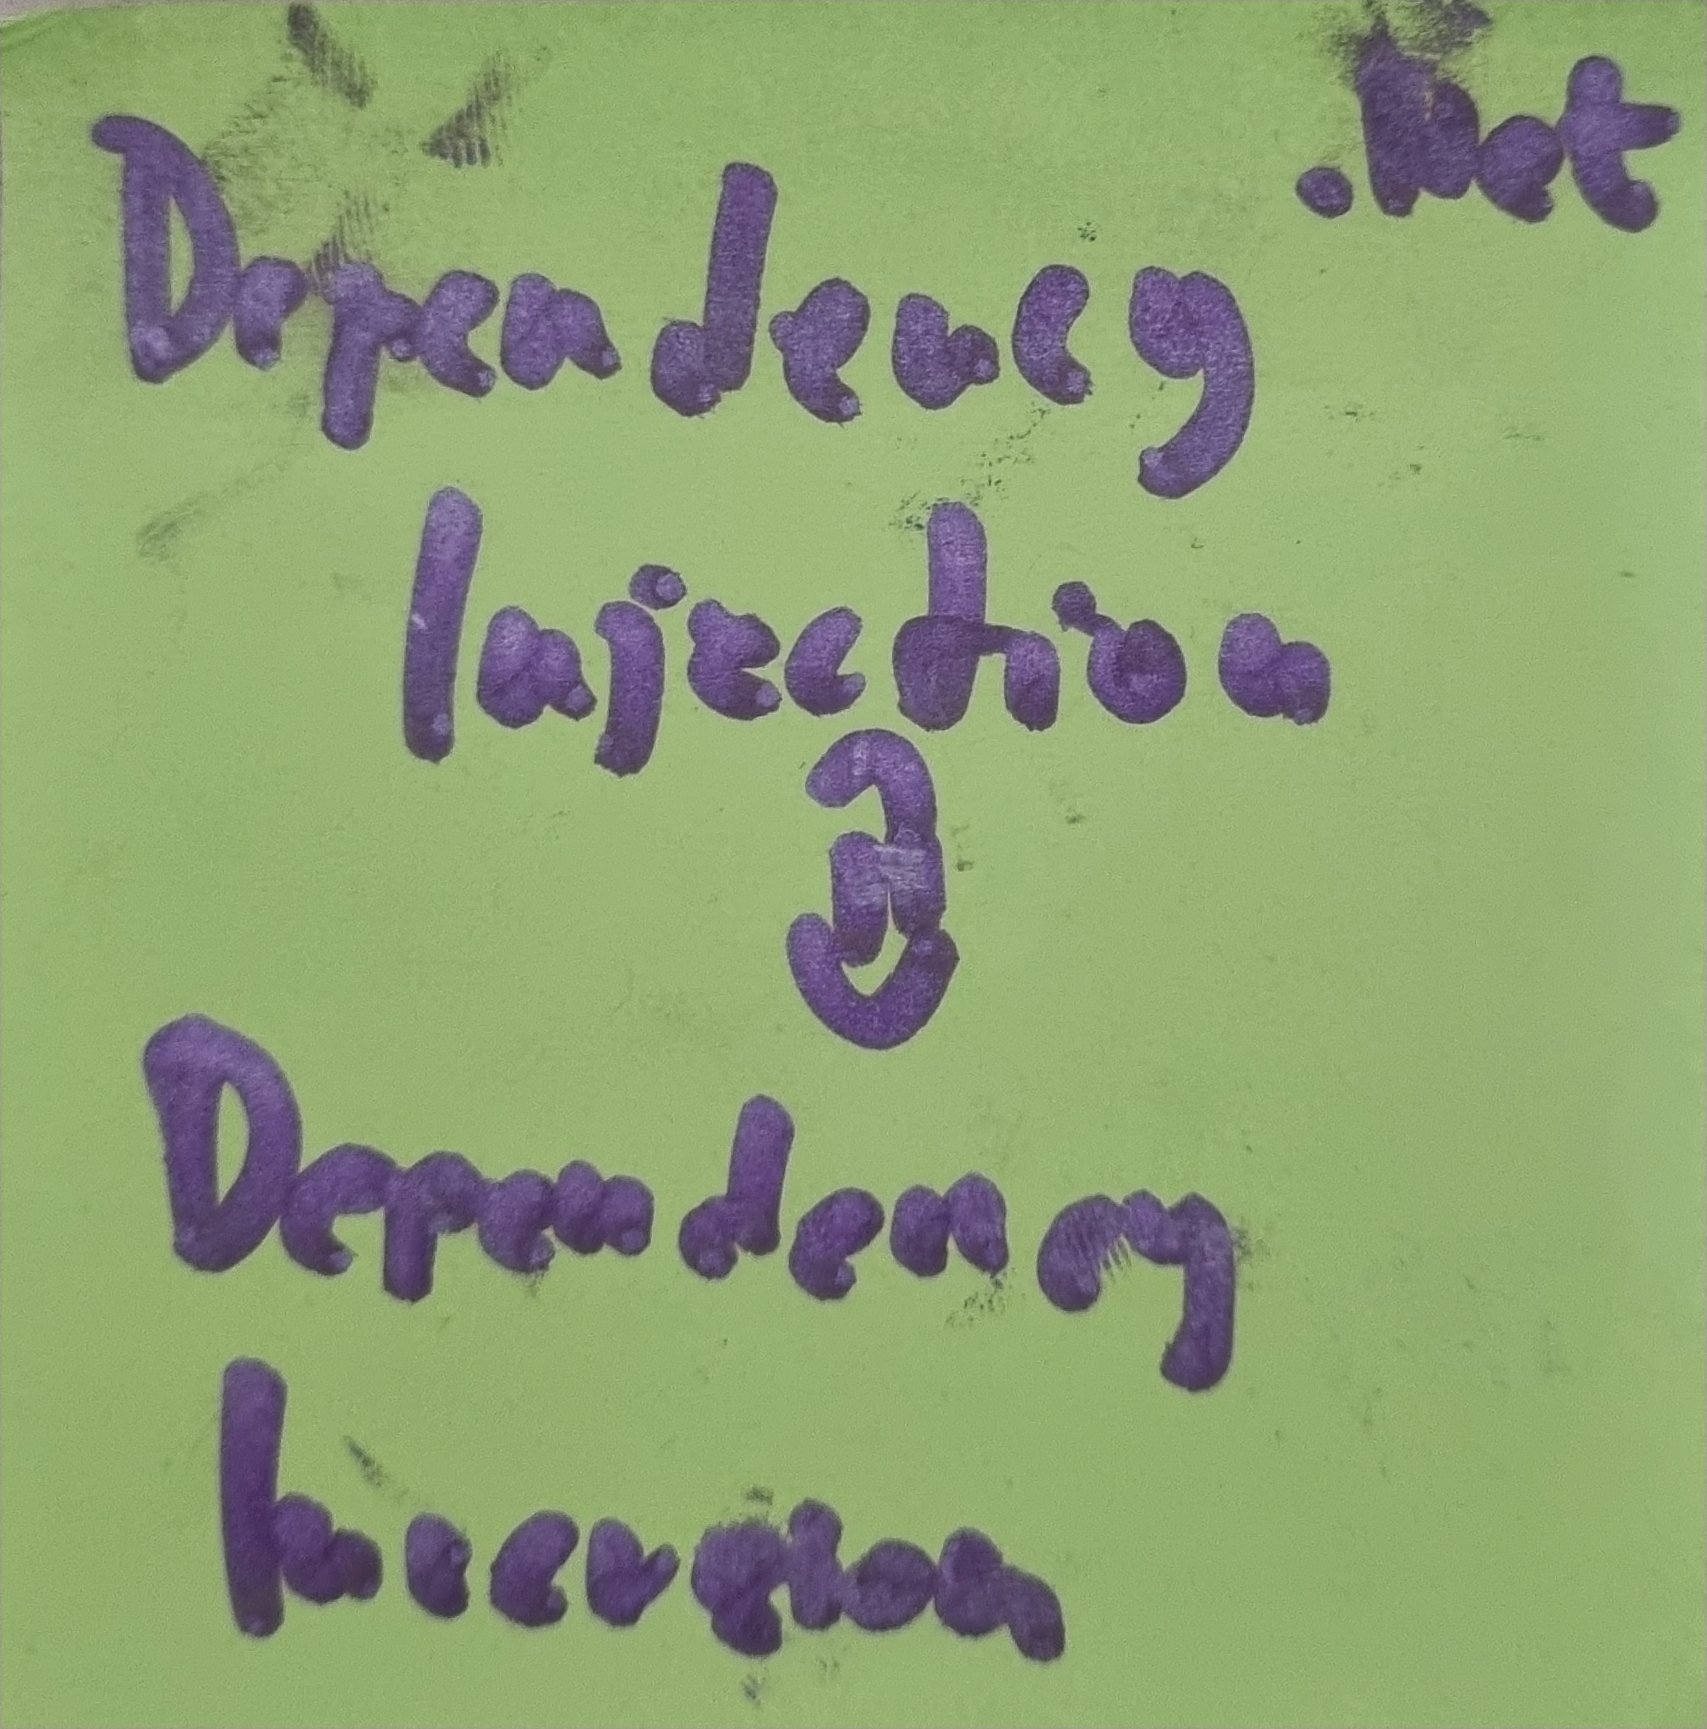 .Net
Dependency
Injection
Dependency
Inversion